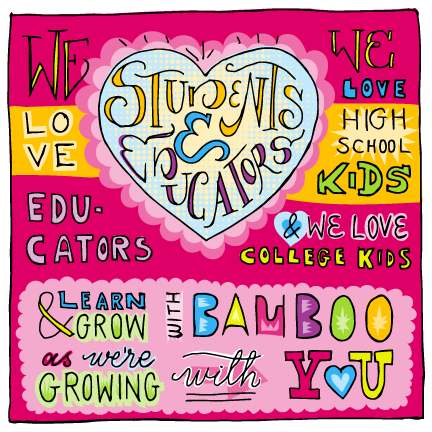 WE
LOVE
EDU-
CATORS
STUDENTS
&
EDUCATORS
WE
LOVE
HIGH
SCHOOL
KIDS
& WE LOVE
COLLEGE KIDS
& LEARN
GROW
WITH BAMBOO
as we're
GROWING
with YOU